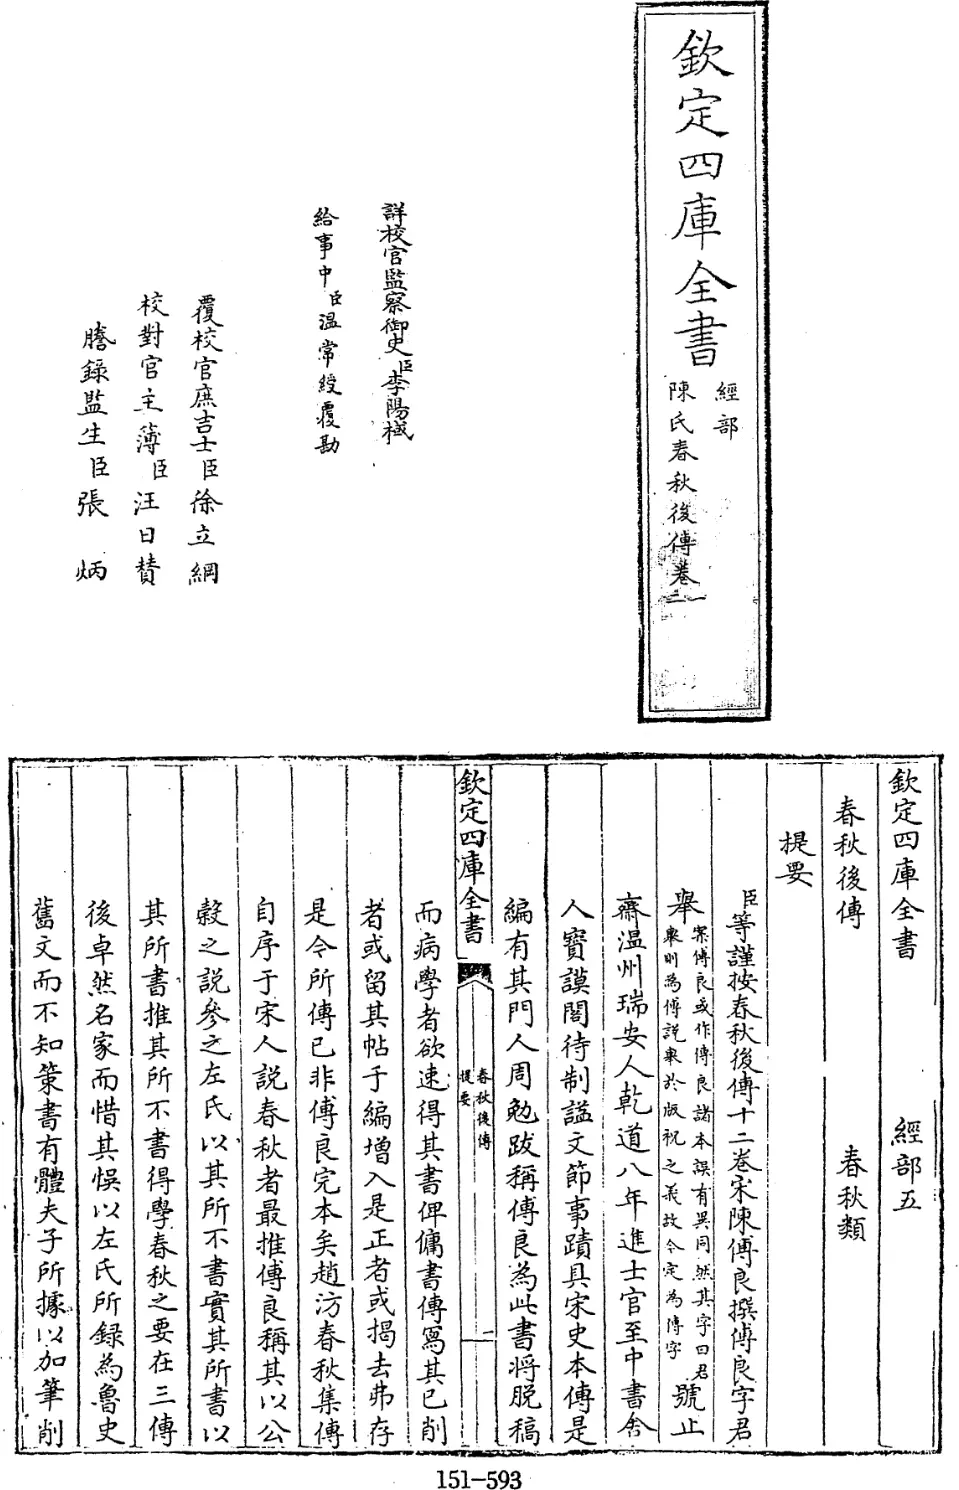 欽定四庫全書
經部
陳氏春秋後傳卷一
二
詳校官監察御史臣李陽棫
給事中臣溫常綬覆勘
覆校官庶吉士臣徐立綱
校對官主簿臣汪日贊
謄錄監生臣張炳
欽定四庫全書 經部五
春秋後傳 春秋類
提要
臣等謹按春秋後傳十二卷宋陳傅良撰傅良字君
舉案傅良或作傳良諸本誤有異同然其字曰君
舉則為傅說舉於版祝之義故今定為傅字
號止
齋溫州瑞安人乾道八年進士官至中書舍
人寳謨閣待制諡文節事蹟具宋史本傳是
編有其門人周勉跋稱傅良為此書將脫稿
欽定四庫全書
春秋後傳
提要
一
而病學者欲速得其書俾傭書傳寫其已削
者或留其帖于編增入是正者或揭去弗存
是今所傳已非傅良完本矣趙汸春秋集傳
自序于宋人說春秋者最推傅良稱其以公
穀之說參之左氏以其所不書實其所書以
其所書推其所不書得學春秋之要在三傳
後卓然名家而惜其悞以左氏所録為魯史
舊文而不知策書有體夫子所據以加筆削
151-593